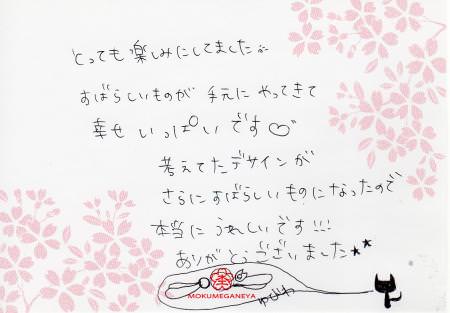 とっても楽しみにしてました
すばらしいものが 手元に やってきて
幸せ いっぱい です♡
考えてたデザインが
さらにすばらしいものになったので
本当に うれしいです!!!
ありがとうございました★★
杢
MOKUMEGANEYA